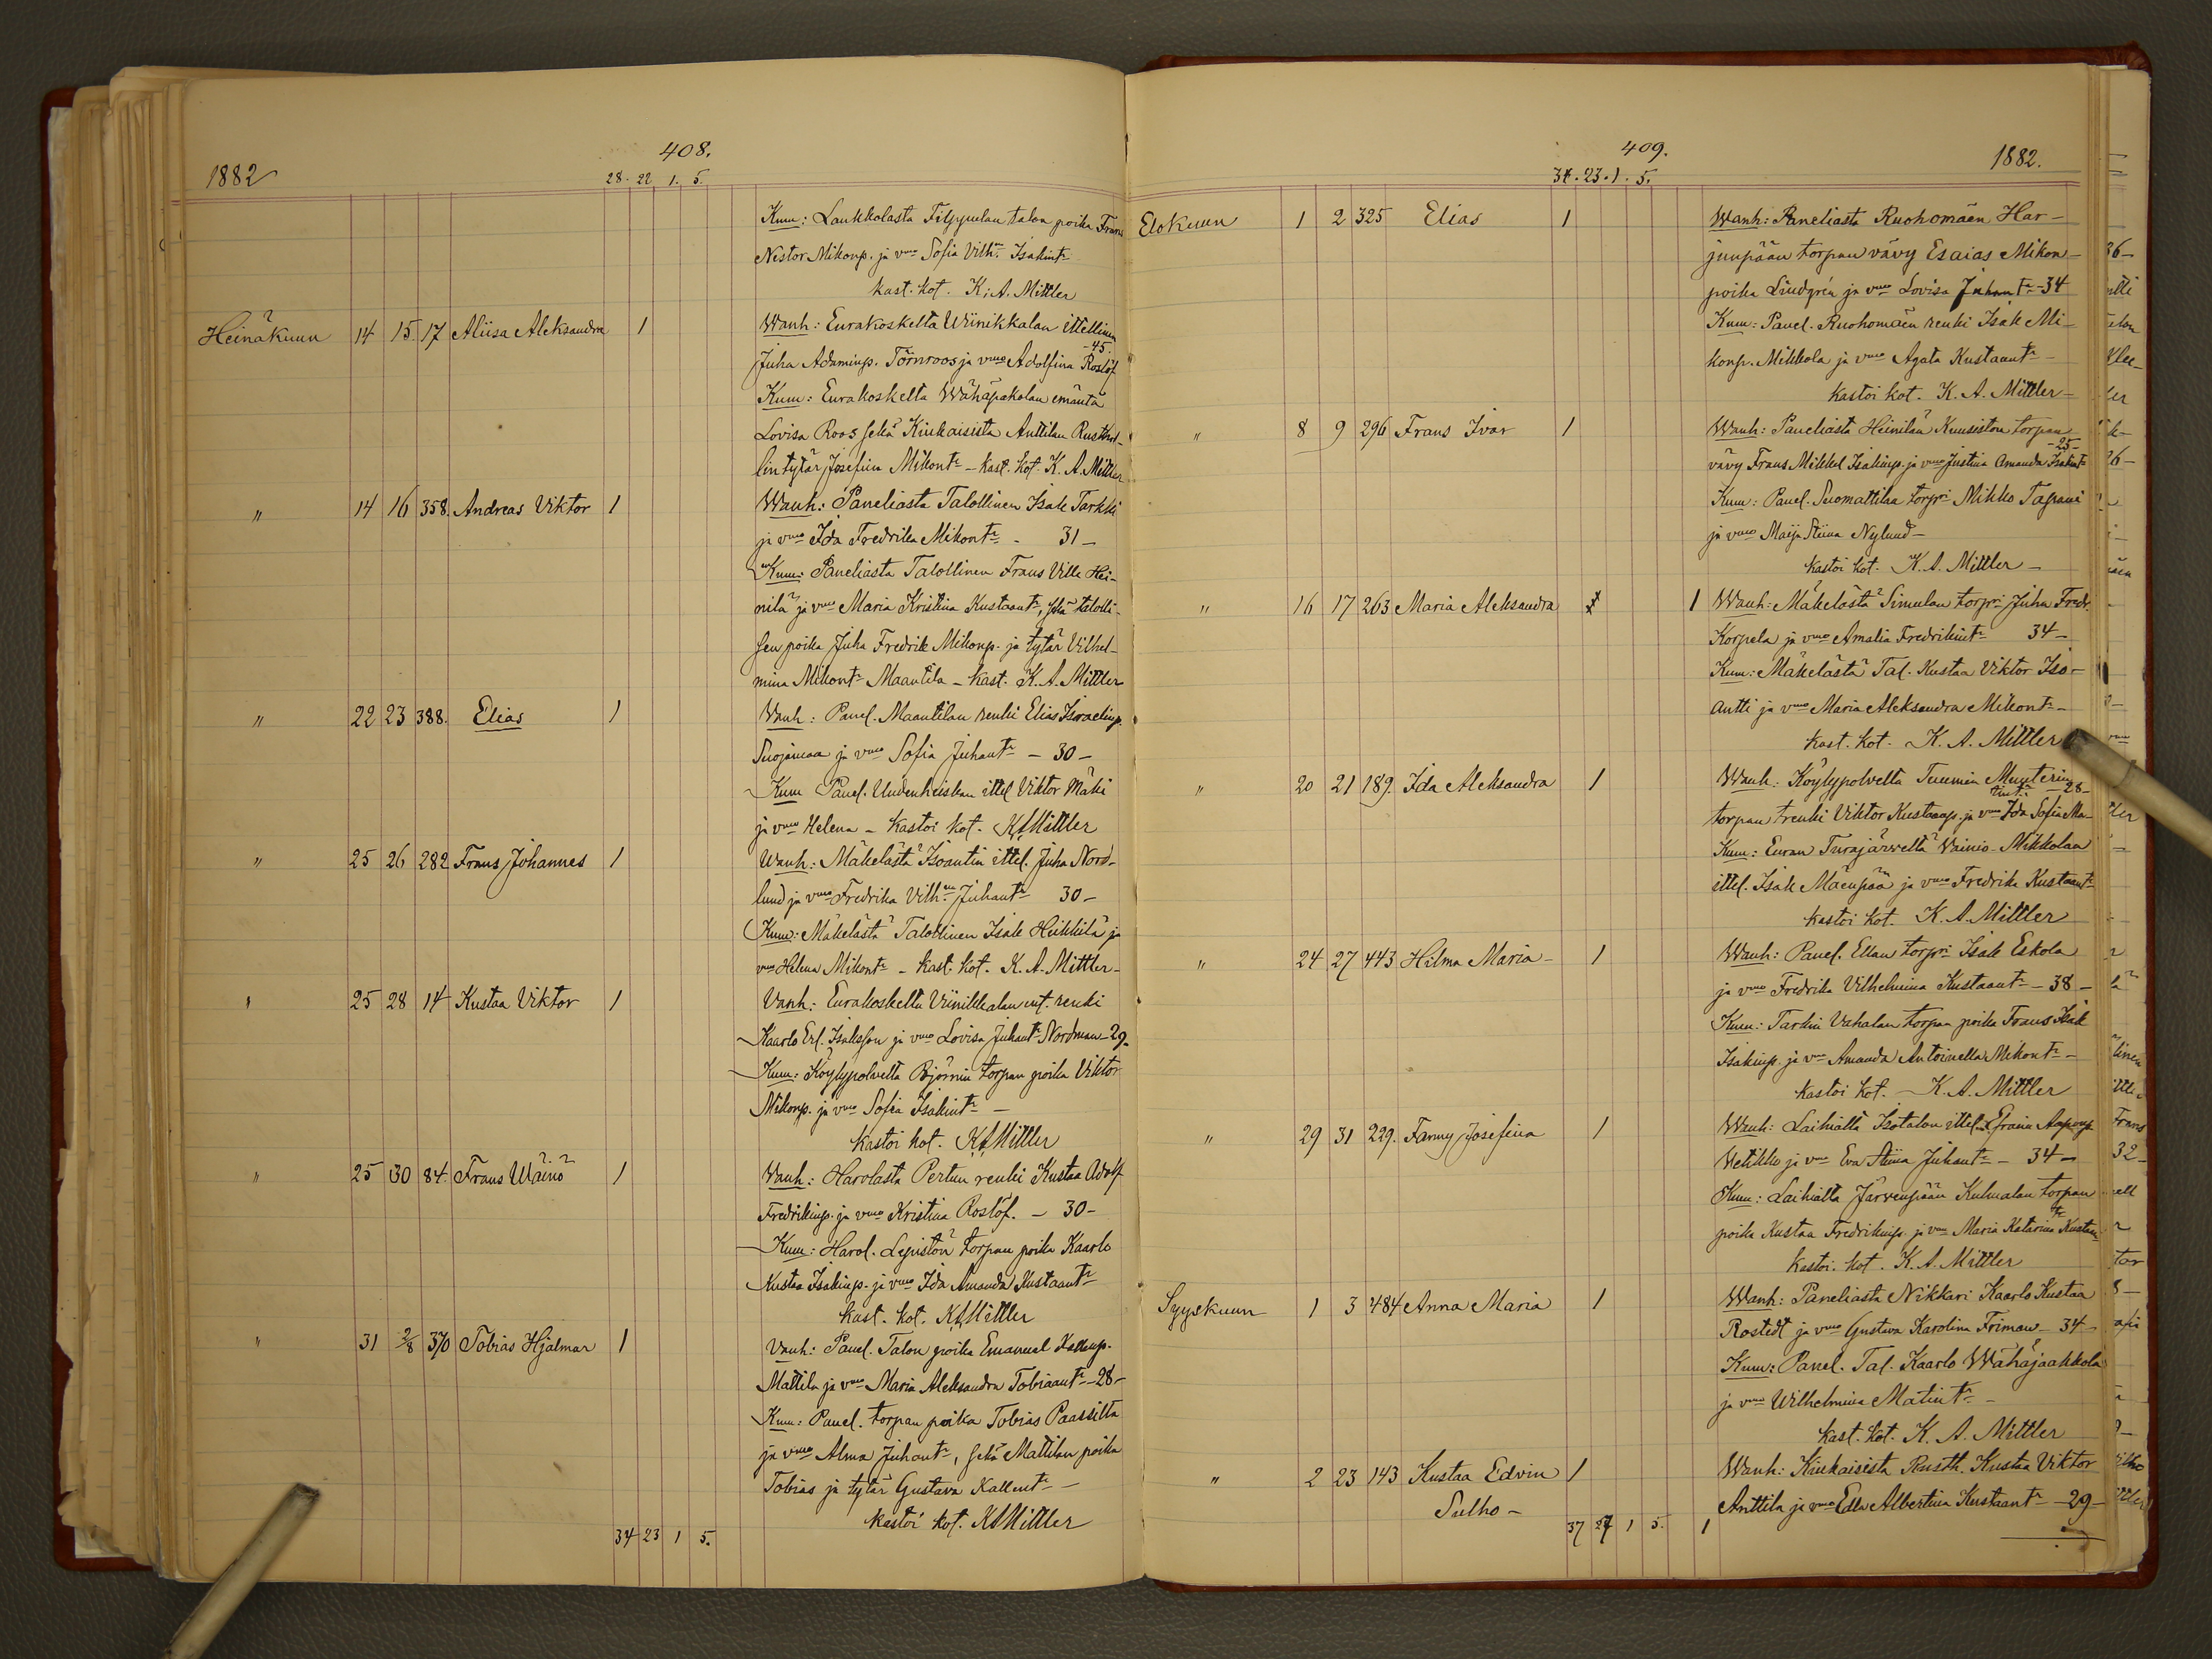 408.
1882
28. 22 1. 5.
Kum: Laukkolasta talon poika Frans
Nestor Mikonp. ja vmo Sofia Vilh. Isakintr
kast. kot. K. A. Mittler
Heinäkuun 14 15. 17 Aliisa Aleksandra 1 Wanh: Eurakoskelta Wiinikkalan ittellinen
Juha Adaminp. Törnroos ja vmo Adolfina Roslöf -45.
Kum: Eurakoskelta Wähäpakolan emäntä
Lovisa Roos sekä Kiukaisista Anttilan Rusthol-
lin tytär Josefiin Mikontr - kast. kot. K. A. Mittler
" 14 16 358. Andreas Viktor 1 Wanh: Paneliasta Talollinen Isak Tarkki
ja vmo Ida Fredrika Mikontr - 31 -
Kum: Paneliasta Talollinen Frans Ville Hei-
nilä ja vmo Maria Kristina Kustaantr, sekä talolli-
sen poika Juha Fredrik Mikonp. ja tytär Vilhel-
mina Mikontr Maantila - kast. K. A. Mittler
" 22 23 388. Elias 1 Wanh: Panel. Maantilan renki Elias Israelinp.
Suojamaa ja vmo Sofia Juhantr - 30 -
Kum Panel. Uudenheiskan ittel Viktor Mäki
ja vmo Helena - kastoi kot. KAMittler
" 25 26 282 Frans Johannes 1 Wanh: Mäkelästä Isoantin ittel. Juha Nord-
lund ja vmo Fredrika Vilh. Juhantr 30 -
Kum: Mäkelästä Talollinen Isak Heikkilä ja
vmo Helena Mikontr - kast. kot. K. A. Mittler -
" 25 28 14 Kustaa Viktor 1 Vanh: Eurakoskelta Viinikkalan ent. renki
Kaarlo Erl. Isaksson ja vmo Lovisa Juhantr Nordman - 29 -
Kum: Köylypolvelta Björnin torpan poika Viktor
Mikonp. ja vmo Sofia Isakintr -
kastoi kot. KAMittler
" 25 30 84. Frans Wäinö 1 Vanh: Harolasta Pertun renki Kustaa Adolf
Fredrikinp. ja vmo Kristina Roslöf. - 30 -
Kum: Harol. Lepistön torpan poika Kaarlo
Kustaa Isakinp. ja vmo Ida Amanda Kustaantr
kast. kot. KAMittler
" 31 2/8 370 Tobias Hjalmar 1 Vanh: Panel. Talon poika Emanuel Kallenp.
Mattila ja vmo Maria Aleksandra Tobiaantr - 28 -
Kum: Panel. torpan poika Tobias Paassilta
ja vmo Alma Juhantr, sekä Mattilan poika
Tobias ja tytär Gustava Kallentr -
kastoi kot. KAMittler
34 23 1 5.
409.
1882.
34. 23. 1. 5.
Elokuun 1 2 325 Elias 1 Wanh: Paneliasta Ruohomäen Har-
junpään torpan vävy Esaias Mikon-
poika Lindgrén ja vmo Lovisa Juhantr - 34
Kum: Panel. Ruohomäen renki Isak Mi-
konp. Mikkola ja vmo Agata Kustaantr -
kastoi kot. K. A. Mittler -
" 8 9 296 Frans Ivar 1 Wanh: Paneliasta Heinilän Kuusiston torpan
vävy Frans Mikkel Isakinp. ja vmo Justina Amanda Isakintr - 25 -
Kum: Panel. Suomattilan torpri Mikko Tapani
ja vmo Maija Stiina Nylund -
kastoi kot. K. A. Mittler -
" 16 17 263 Maria Aleksandra 1 Wanh: Mäkelästä Simulan torpri Juha Fredr.
Korpela ja vmo Amalia Fredrikintr 34 -
Kum: Mäkelästä Tal. Kustaa Viktor Iso-
antti ja vmo Maria Aleksandra Mikontr -
kast. kot. K. A. Mittler
" 20 21 189. Ida Aleksandra 1 Wanh: Köylypolvelta Tuumin Munterin
torpan renki Viktor Kustaanp. ja vmo Ida Sofia Ma-
tintr - 28 -
Kum: Euran Turajärveltä Vainio-Mikkolan
ittel. Isak Mäenpää ja vmo Fredrika Kustaantr
kastoi kot. K. A. Mittler
" 24 27 443 Hilma Maria - 1 Wanh: Panel. Ellan torpri Isak Eskola
ja vmo Fredrika Vilhelmina Kustaantr - 38 -
Kum: Tarkin Vahalan torpan poika Frans Isak
Isakinp. ja vmo Amanda Antoinetta Mikontr -
kastoi kot. - K. A. Mittler
" 29 31 229. Fanny Josefina 1 Wanh: Laihialta Isotalon ittel. Efraim Aaponp.
Hetikko ja vmo Eva Stiina Juhantr - 34 -
Kum: Laihialta Järvenpään Kulmalan torpan
poika Kustaa Fredrikinp. ja vmo Maria Katarina Kustaantr
kastoi. kot. K. A. Mittler
Syyskuun 1 3 484 Anna Maria 1 Wanh: Paneliasta Nikkari Kaarlo Kustaa
Rostedt ja vmo Gustava Karolina Friman - 34 -
Kum: Panel. Tal. Kaarlo Wähäjaakkola
ja vmo Wilhelmina Matintr -
kast. kot. K. A. Mittler
" 2 23 143 Kustaa Edvin 1 Wanh: Kiukaisista Rusth. Kustaa Viktor
Sulho - Anttila ja vmo Edla Albertina Kustaantr - 29 -
37 27 1 5. 1